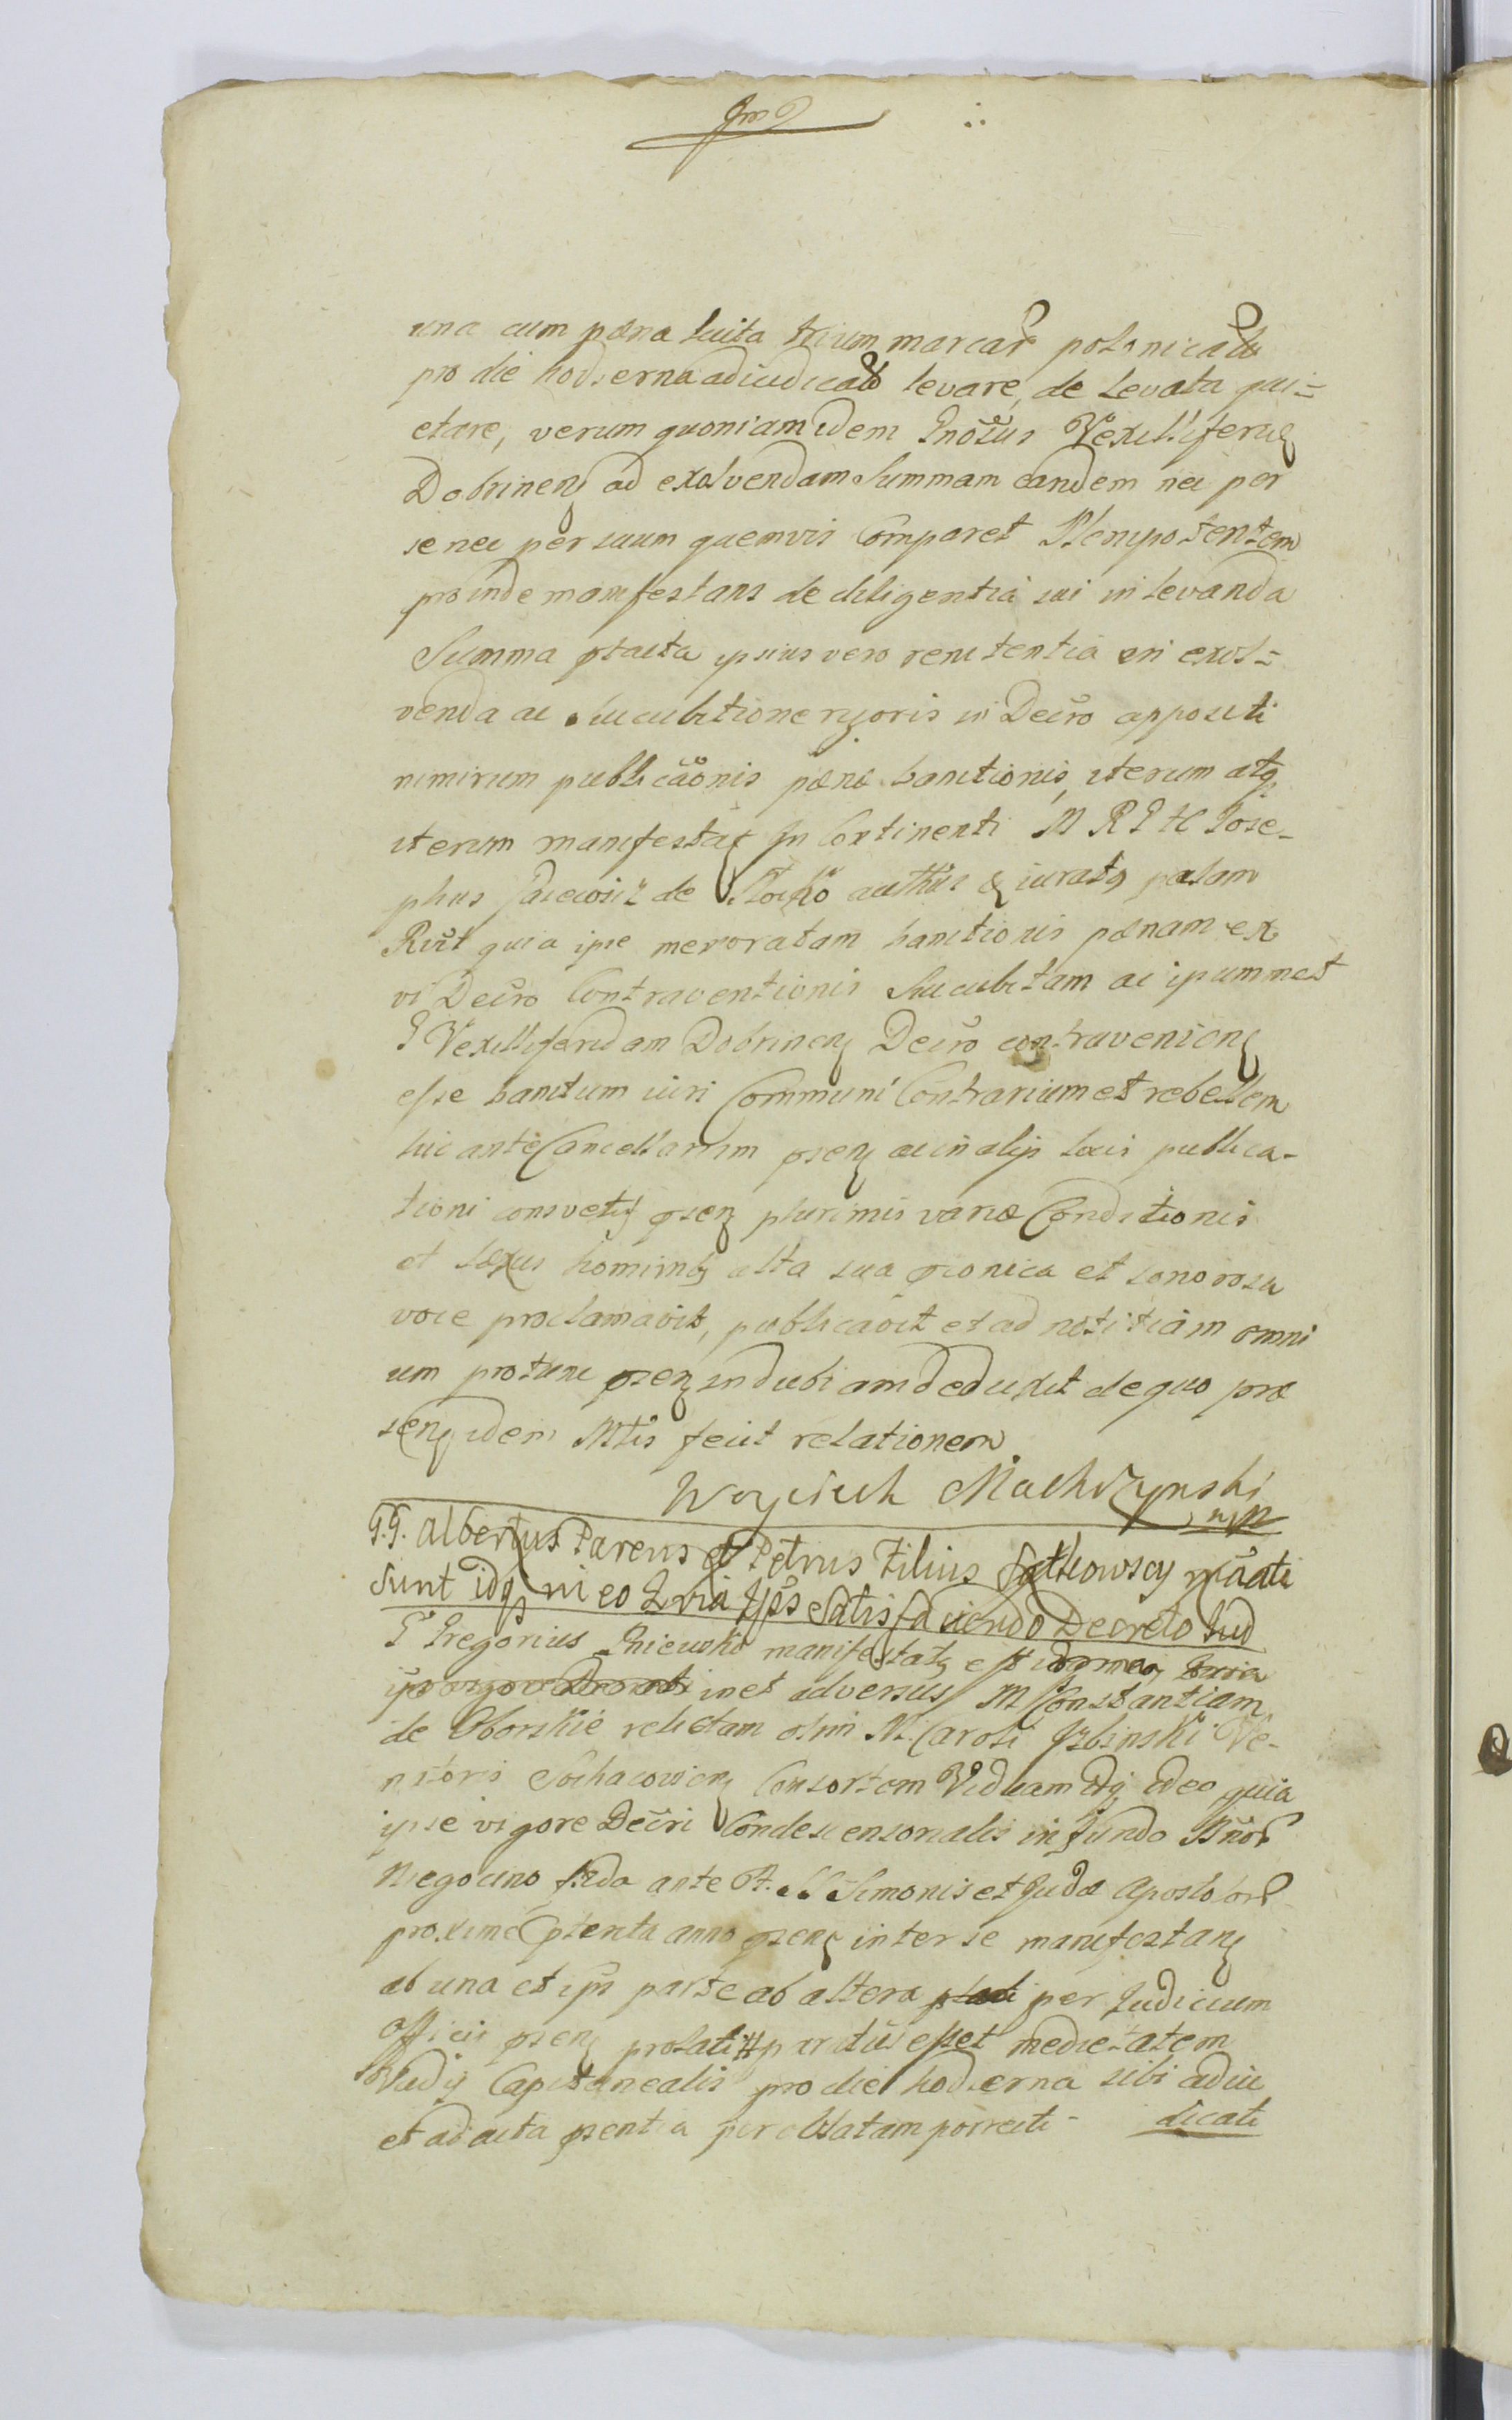 una cum pæna luita trium marcar polonical
pro die hodierna adiudicat levare, de levata qui=
etare, verum quoniam idem Gnosus Vexilliferus
Dobrinens ad exolvendam Summam eandem nec per
se nec per suum quemvis Comparet Plenipotentem
proinde manifestans de diligentia sui in levanda
Summa ptacta ipsius vero renitentia in exol=
venda ac succubitione rigoris in Decro appositi
nimirum publicaonis pænæ banitionis, iterum atq
iterum manifestat In Continenti M R G H Jose-
phus de authus & iuratq palam
Rcut quia ipse memoratam banitionis pænam ex
vi Decro Contraventionis Succubitam ac ipsummet
G Vexilliferidam Dobrinens Decro contraveniens
esse banitum iuri Communi Contrarium et rebellem
hic ante Cancellariam psens ac in alijs locis publica-
tioni consvetis psens plurimis variæ Conditionis
et sexus hominibq alta sua pconica et sonorosa
voce proclamavit, publicavit et ad notitiam omni
um protunc psens indubiam deduxit de quo præ
sens idem Mtis fecit relationem
Woyciech Malczynski
mp
G.G. Albertus Parens et Petrus Filius mãati
Sunt idq in eo quia Ipsi Satisfaciendo Decreto Iud
G Gregorius Gniewski manifestatq est idq in eo quia
inet adversus M Constantiam
de Oborskie relictam olim M. Caroli Izbinski Ve-
natoris Sochacoviens Consortem Viduam idq ideo quia
ipse vigore Decri Condescensorialis in fundo Bnor
Niegocino feria ante F. SS Simonis et Judæ Apostolor
proxime pterita anno psens inter se manifestans
ab una et ips parte ab altera per Judicium
Officii psens prolati # paratus esset medietatem
Vadij Capitanealis pro die hodierna sibi adiu
et ad acta psentia per oblatam porrecti - dicati